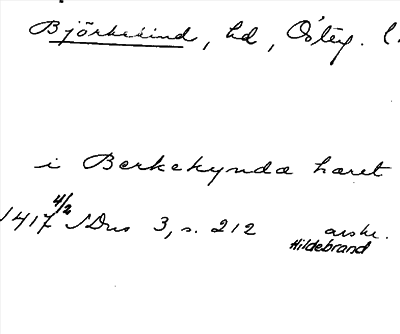 Björkekind, hd, Östg. (
i Berkekynda häret
1417 4/2 SDns 3, s. 212 avskr.
Hildebrand